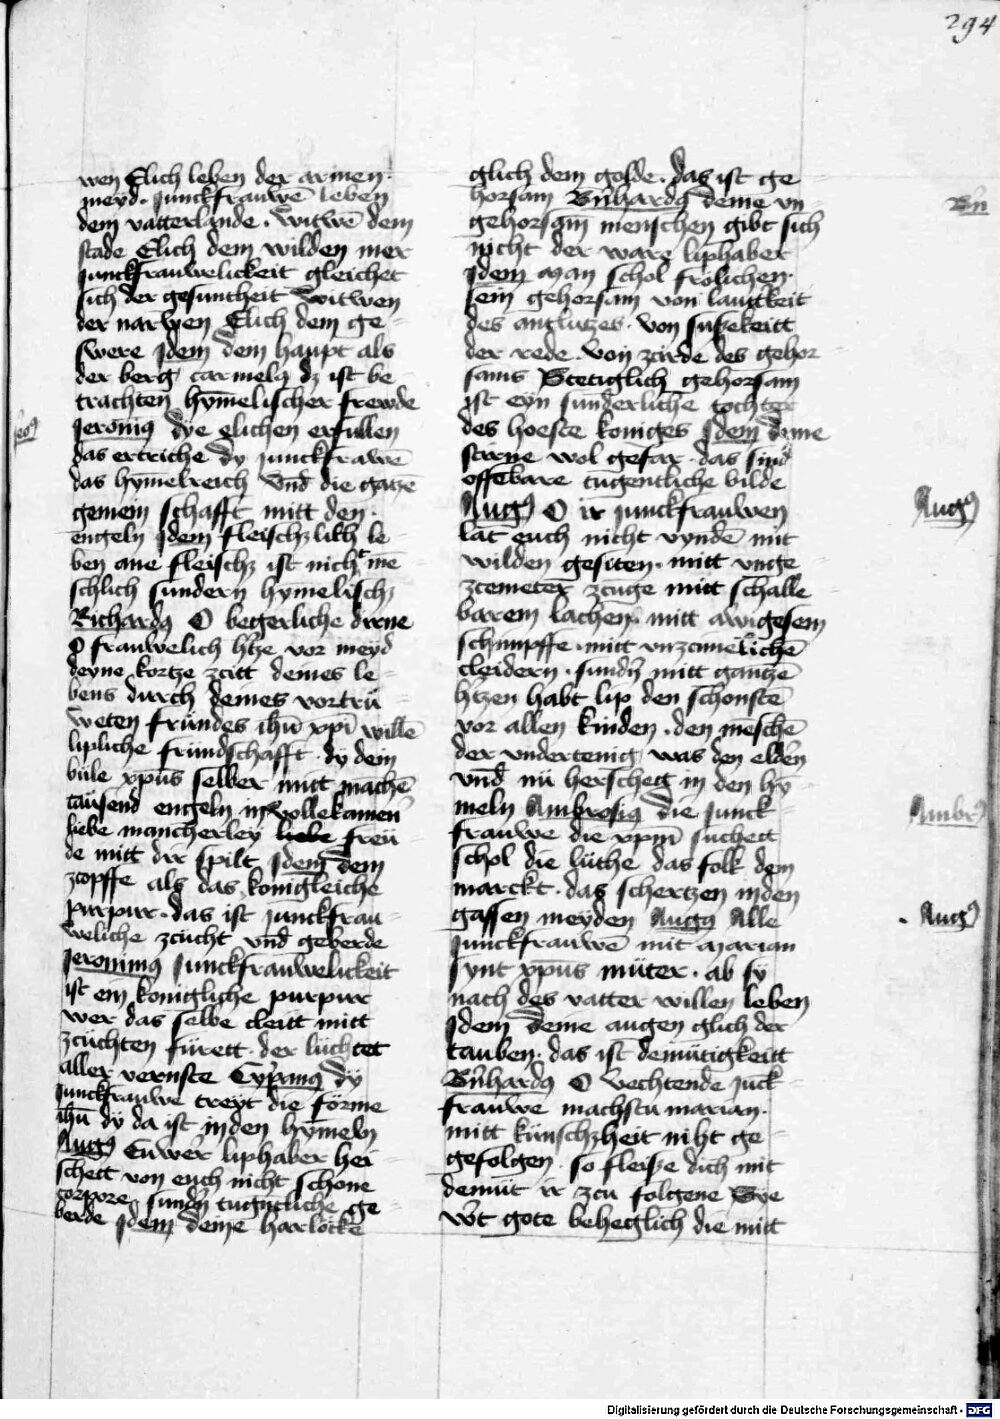 294
wen Elich leben der armen ·
meyd · junckfrauwē leben
dem vatterlande · witwē dem
stade Elich dem wilden mer
junckfrauwelickeit gleichet
sich der gesuntheit witwen
der narwen Elich dem ge-
swere Jdem dem haupt als
der berg carmelꝯ dz ist be-
trachten hymelischer frewde
Jeronimꝯ dye elichen erfullen
das ertriche dy junckfrawē
das hymelreich vnd die gātzē
gemein schafft mitt den ·
engeln Jdem fleischzlikh le-
ben ane fleischz ist nicht mē
schlich sundern hymelischz
Richardꝯ O begerliche dirne
O frauwelich htze vor meyd
deyne kortze zcitt deines le-
bens durch deines vortrü-
weten fründes ihū xpī willē
lipliche fründschafft · dy dein
bule xpūs selber mitt māchē
tausend engeln in vollekamen
liebe mancherley freü-
de mitt dir spilt Jdem dem
zcopffe als das konigleiche
purpur · das ist junckfrau-
weliche zcücht vnd geberde
Jeronimꝯ Junckfrauwelickeit
ist ein konigliche purpur
wer das selbe cleitt mitt
zcüchten fürett · der lüchtet
aller vernste Cyprianꝯ dÿ
junckfrauwe treyt die förme
ihū dÿ da ist in den hymeln
Augꝯ Euwer liphaber hei-
schett von euch nicht schone
corpore sundn tugntliche ge-
berde Jdem deine harlocke
glich dem golde · das ist ge
horsam Bnhardꝯ deme vn-
gehorsam menschen gibt sich
nicht der ware liphaber
Jdem Man schol frolichen ·
sein gehorsam von lautkeit
des antlutzes · von sußekeitt
der rede · von zcirde des gehor-
sams Stetiglich gehorsam
ist eyn sunderliche tochter
des hoeste koniges Jdem deine
stirne wol gefar · das sind
offebare tugentliche bilde
Augꝯ O ir junckfrauwen
lat euch nicht vyndē mit
wilden gesiten · mitt vnge
zcemeter zcuge mitt schalle
barem lachen · mitt awigesem
schimpffe · mitt vnzcimelichē
cleidern · sundn mitt gantzē
htzen habt lip den schonstē
vor allen kinden · den mēschē
der vndertenig was den eldēn
vnd nü herschett in den hy-
meln Ambrosiꝯ die junck-
frauwe die xpm suchett
schol die lüthe das folk dem
marckt · das schertzen in den
gassen meyden Augꝯ Alle
junckfrauwē mit Marian
synt xpūs müter · ab sÿ
nach des vatter willen leben
Jdem deine augen glich der
tauben · das ist demütigkeitt
Bnhardꝯ O vechtende juck-
frauwe machstu marian ·
mitt künschzheit niht ge
gefolgen · so fleiße dich mit
demut ir zcu folgene Sye
wt gote beheglich die mitt
Bn
Augꝯ
Ambrꝯ
Augꝯ